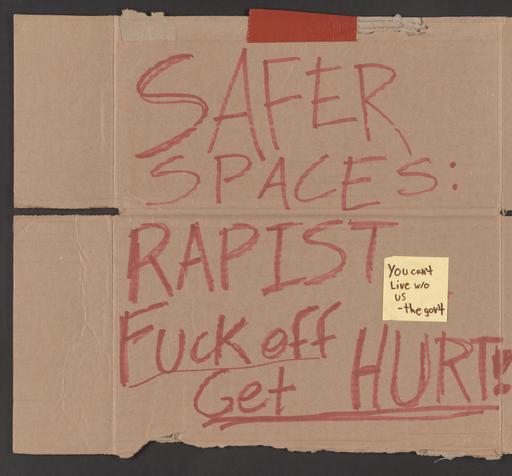 SAFER
SPACES:
RAPIST
FUCK off
Get HURT!!
You can't
Live w/o
us
-the gov't